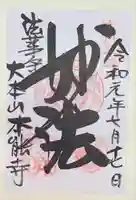 令和元年七月十一日
妙法
法華宗
大本山本能寺